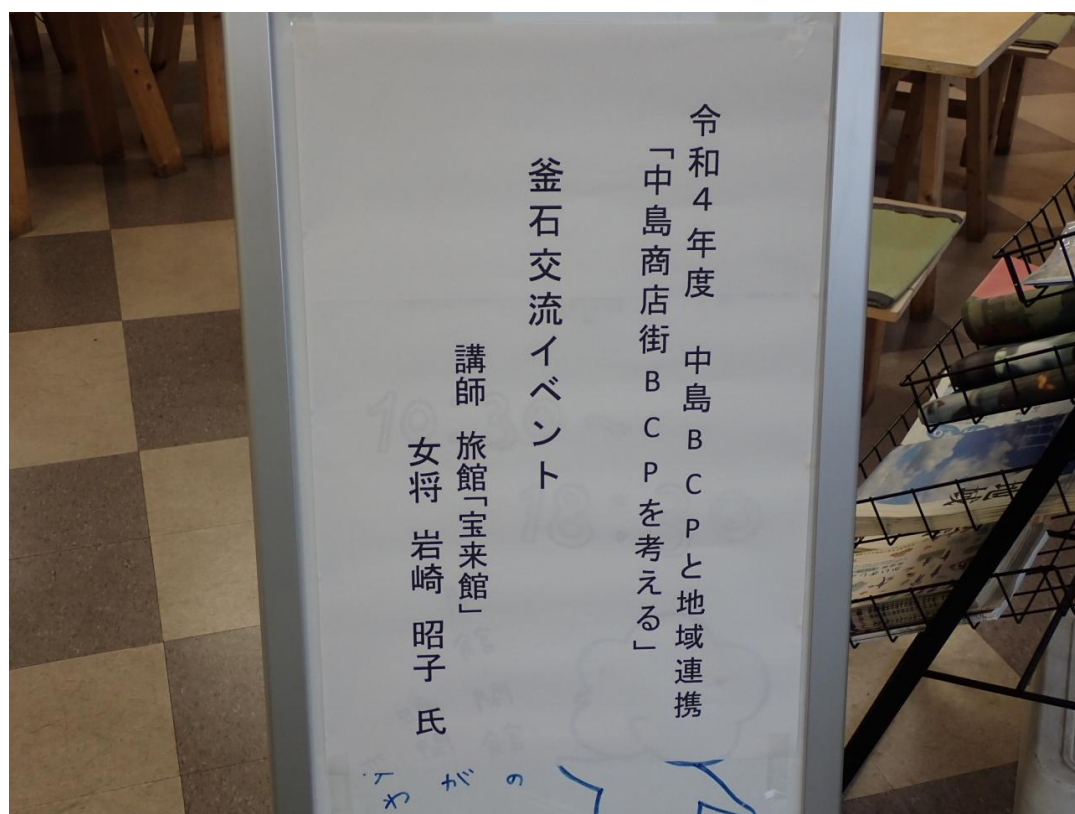 令和４年度　中島ＢＣＰと地域連携
「中島商店街ＢＣＰを考える」
釜石交流イベント
講師　旅館「宝来館」
女将　岩崎　昭子　氏
10:30～
18:30
の
が
わ
地域